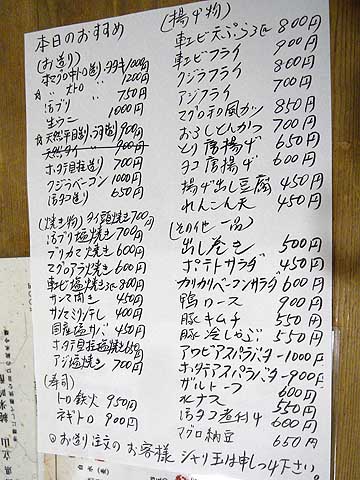 本日のおすすめ
(お造り)
本マグロ中トロ造り・ヌキ 1000円
〃 大トロ 〃 1200円
活ブリ 〃 750円
生ウニ 1000円
天然平目造り 900円
天然タイ 〃 900円
ホタテ貝柱造り 700円
クジラベーコン 1000円
活タコ造り 650円
(焼き物) タイ頭焼 700円
活ブリ塩焼き 700円
ブリカマ焼き 600円
マグロアラ焼き 600円
車エビ塩焼き 800円
サンマ開き 450円
サンマミリン干し 400円
国産塩サバ 450円
ホタテ貝柱塩焼き
アジ塩焼き 700円
(寿司)
トロ鉄火 950円
ネギトロ 900円
(揚げ物)
車エビ天ぷら 800円
車エビフライ 900円
クジラフライ 800円
アジフライ 700円
マグロ和風カツ 850円
おろしとんかつ 700円
とり唐揚げ 650円
タコ唐揚げ 600円
揚げ出し豆腐 450円
れんこん天 450円
(その他一品)
出し巻き 500円
ポテトサラダ 450円
カリカリベーコンサラダ 600円
鴨ロース 900円
豚キムチ 550円
豚冷しゃぶ 550円
アワビアスパラバター 1000円
ホタテアスパラバター 900円
ガルトーフ 600円
水ナス 600円
活タコ煮付け 600円
マグロ納豆 650円
お造り注文のお客様 シャリ玉は申しつけ下さい。